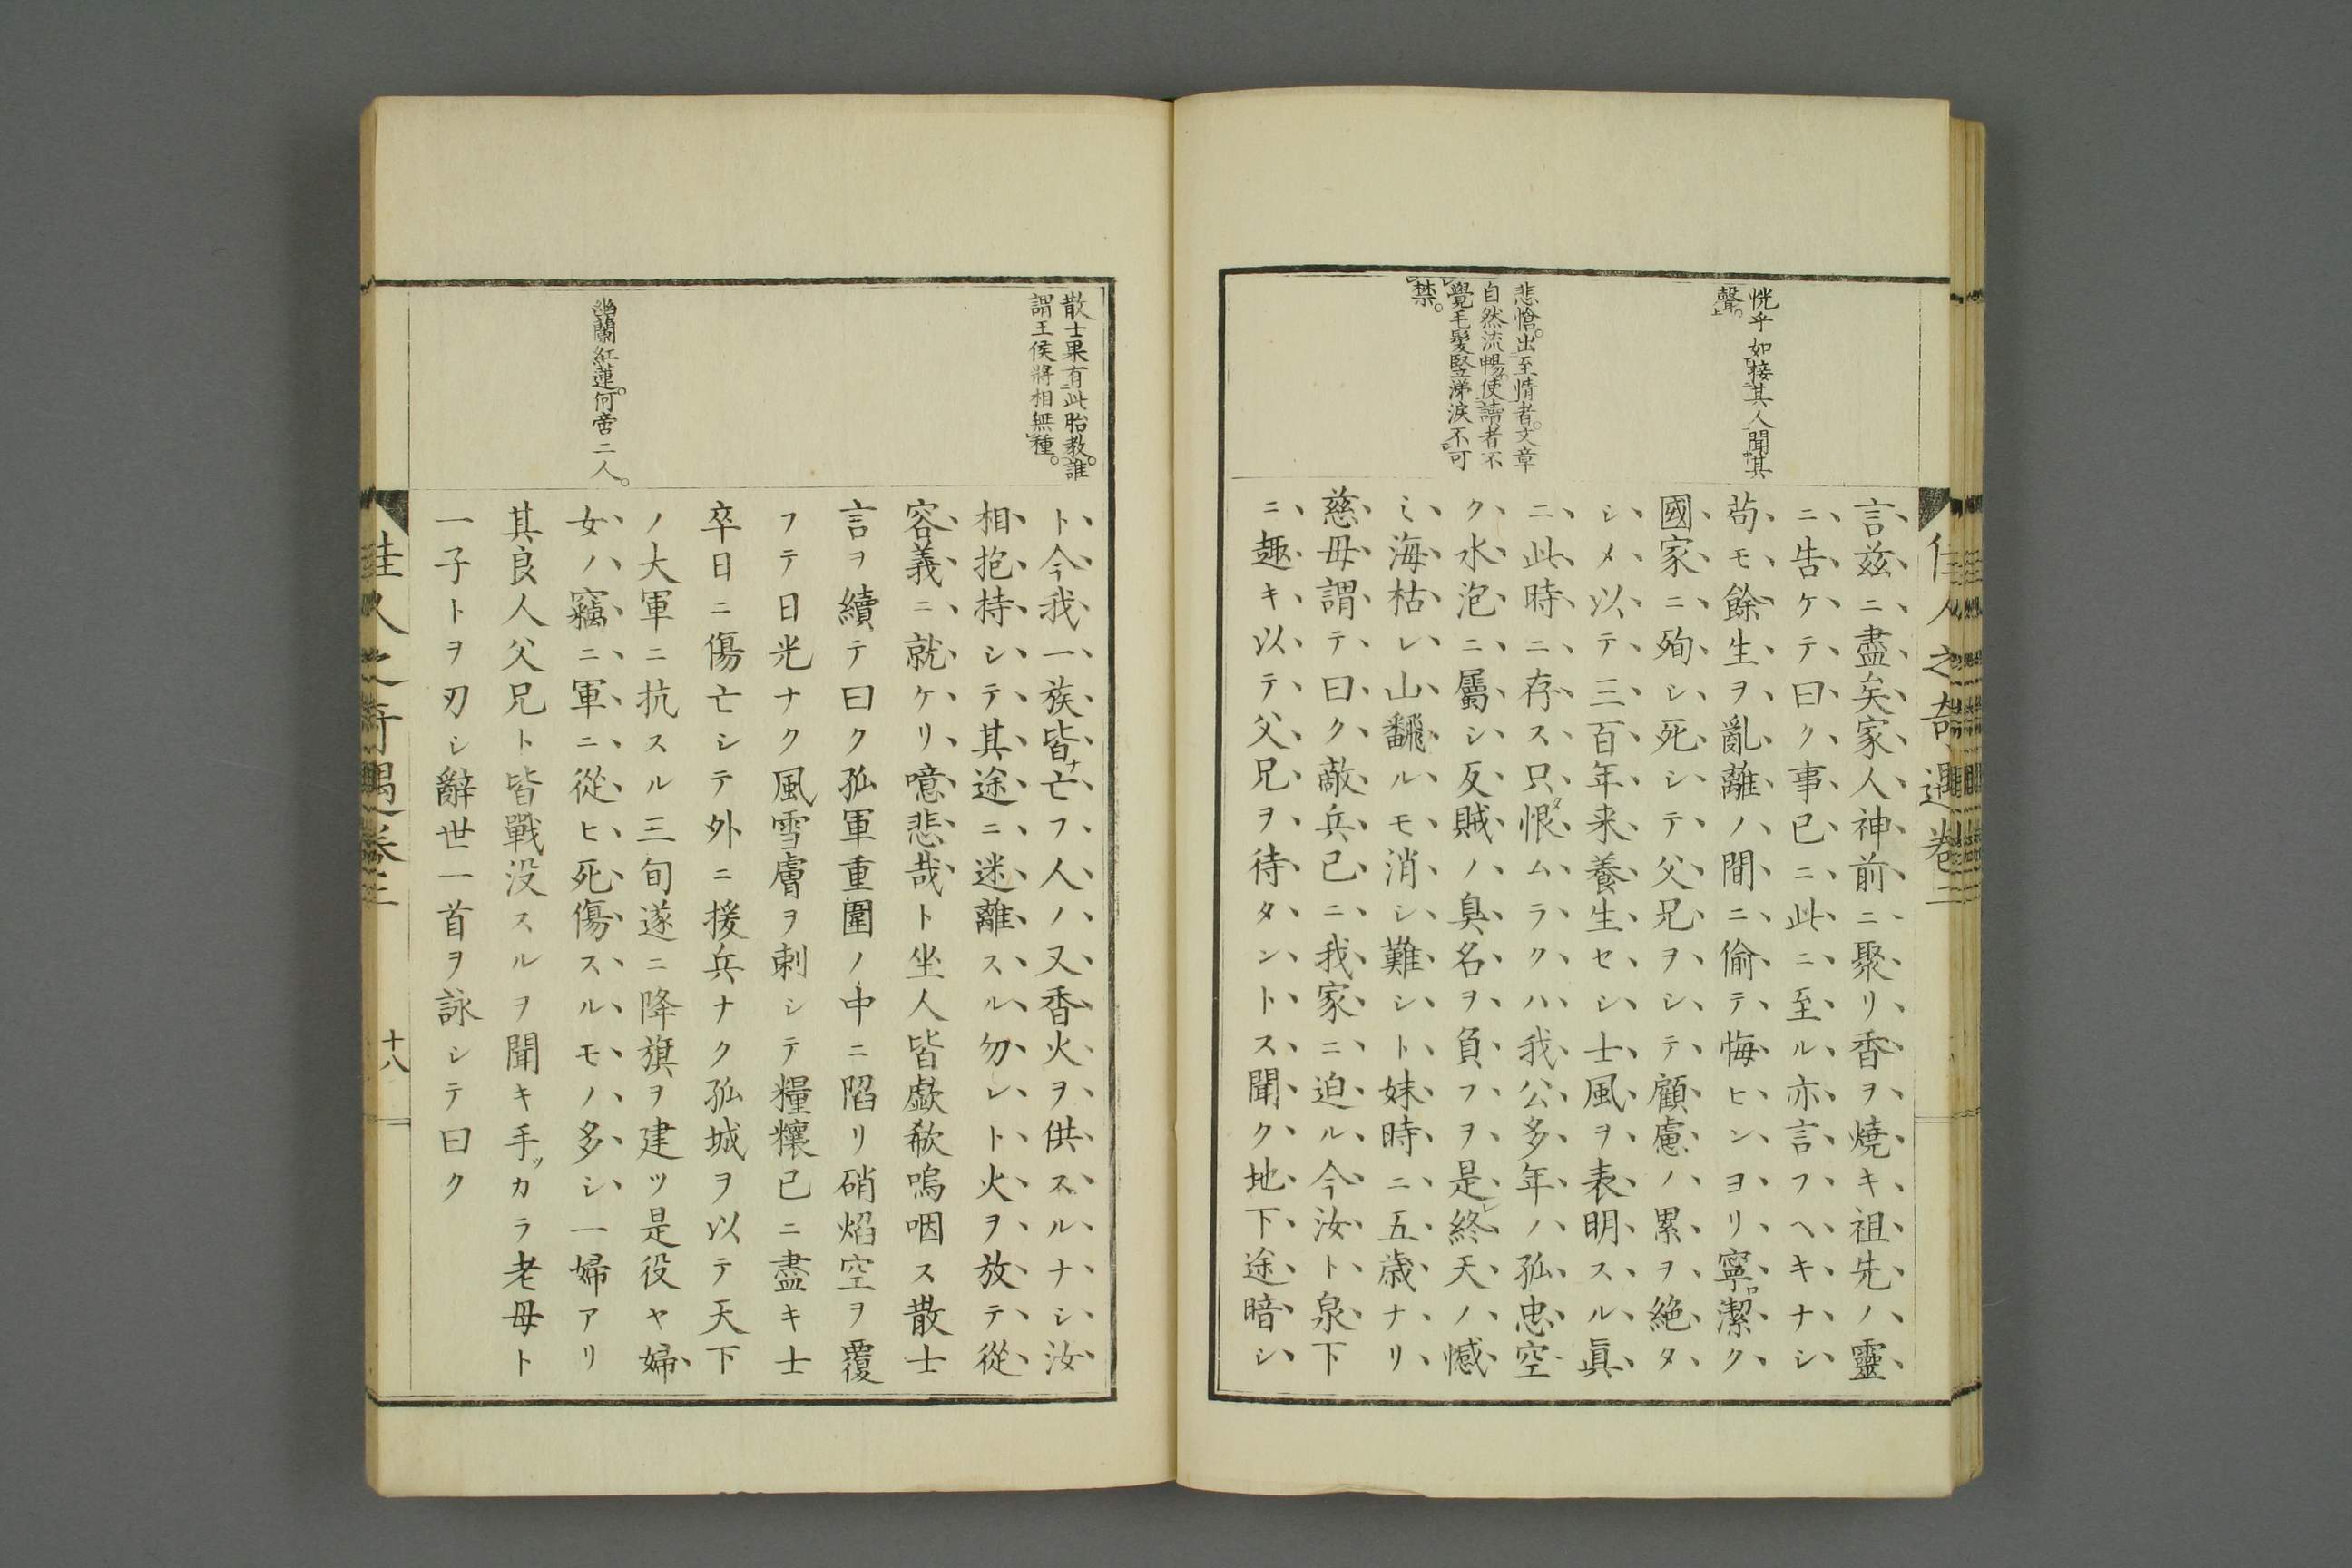 佳人之奇遇卷二
恍乎如接其人聞其
聲。
悲愴。出至情者。文章
自然流暢。使讀者不
覺毛髮竪涕淚不可
禁。
言茲ニ盡矣家人神前ニ聚リ香ヲ燒キ祖先ノ靈
ニ告ケテ曰ク事已ニ此ニ至ル亦言フヘキナシ
苟モ餘生ヲ亂離ノ間ニ偷テ悔ヒンヨリ寧ロ潔ク
國家ニ殉シ死シテ父兄ヲシテ顧慮ノ累ヲ絕タ
シメ以テ三百年来養生セシ士風ヲ表明スル眞
ニ此時ニ存ス只タ恨ムラクハ我公多年ノ孤忠空
ク水泡ニ屬シ反賊ノ臭名ヲ負フヲ是レ終天ノ憾
ミ海枯レ山飜ルモ消シ難シト妹時ニ五歳ナリ
慈母謂テ曰ク敵兵已ニ我家ニ迫ル今汝ト泉下
ニ趣キ以テ父兄ヲ待タントス聞ク地下途暗シ
散士果有此胎教。誰
謂王侯將相無種。
幽蘭紅蓮。何啻二人。
ト今我一族皆ナ亡フ人ノ又香火ヲ供スルナシ汝
相抱持シテ其途ニ迷離スル勿レト火ヲ放テ從
容義ニ就ケリ噫悲哉ト坐人皆歔欷嗚咽ス散士
言ヲ續テ曰ク孤軍重圍ノ中ニ陷リ硝焰空ヲ覆
フテ日光ナク風雪膚ヲ刺シテ糧糗已ニ盡キ士
卒日ニ傷亡シテ外ニ援兵ナク孤城ヲ以テ天下
ノ大軍ニ抗スル三旬遂ニ降旗ヲ建ツ是役ヤ婦
女ノ竊ニ軍ニ從ヒ死傷スルモノ多シ一婦アリ
其良人父兄ト皆戰没スルヲ聞キ手ツカラ老母ト
一子トヲ刃シ辭世一首ヲ詠シテ曰ク
佳人之奇遇卷二
十八